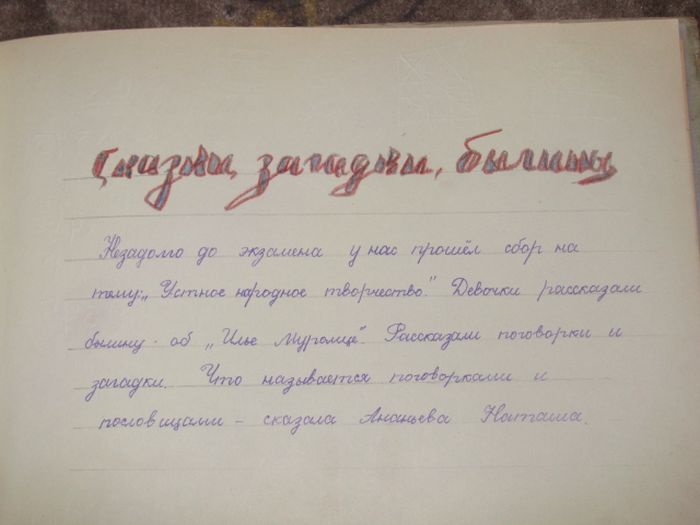 Сказки, загадки, былины
Незадолго до экзамена у нас прошёл сбор на
тему: „Устное народное творчество." Девочки рассказали
былину об „Илье Муромце". Рассказали поговорки и
загадки. Что называется поговорками и
пословицами – сказала Ананьева Наташа.